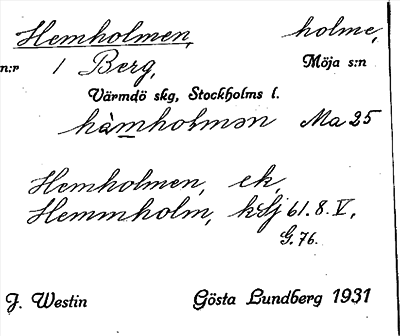 Hemholmen, holme,
n:r 1 Berg, Möja s:n
Värmdö skg, Stockholms l.
hàmholmən Ma 25
Hemholmen, ek,
Hemmholm, kSj 61.8.V,
G. 76.
J. Westin Gösta Lundberg 1931